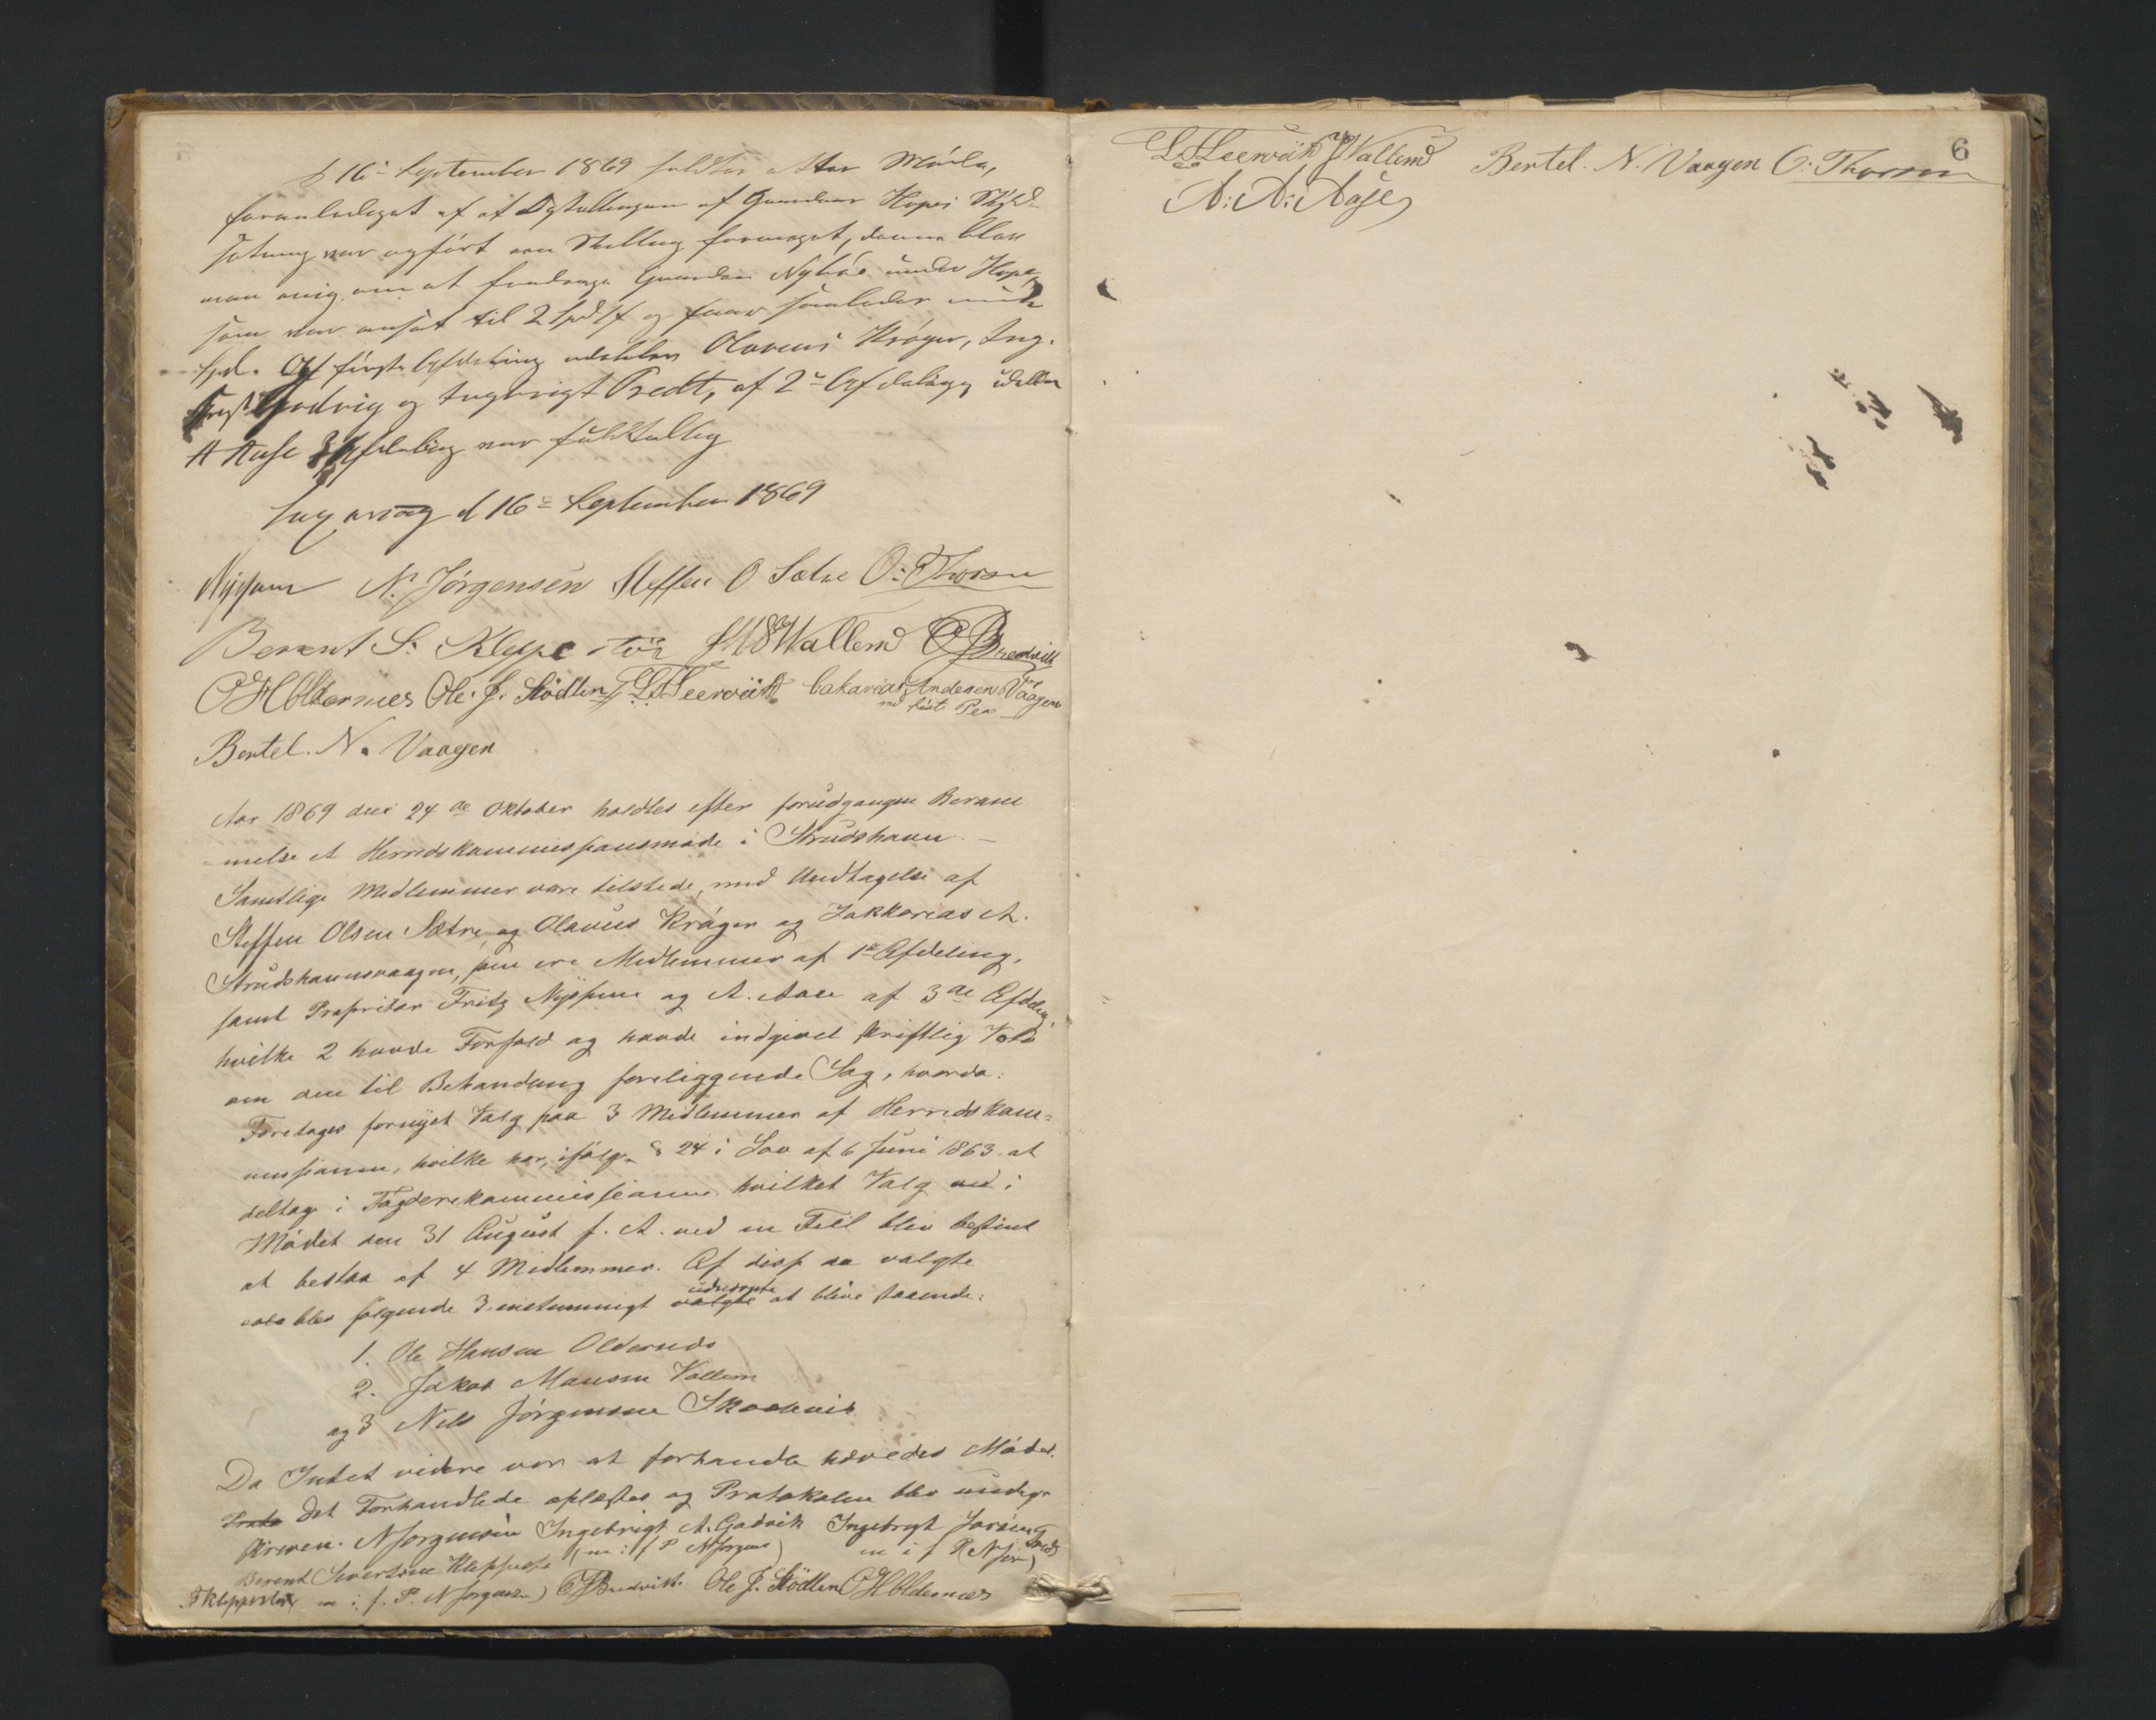 d 16de September 1869 holdtes atter Möde,
foranlediget af at Opstillingen af Gaarden Hopes Skyld-
sætning var opført en Skilling formeget, denne blev
man enig om at fradrage Gaarden Nybö under Hope,
som var ansat til 2 Spd og faar saaledes
Spd. Af første Afdeling udeblev Olavus Krøger, Ing.
Godvig og Ingbrigt Bredt, af 2de Afdeling udeblev
A Aase 3 Afdeling var fuldtallig
d 16de September 1869
N. Jörgensen Steffen O Sætre O: Thorsen
Berent S. Kleppestö JMWallem
OHOldernæs Ole J. Stödlen LTLeervik Cakarias Andersen Vaagen
Bertel. N. Vaagen
Aar 1869 den 24de Oktober holdtes efter forudgangen Beram
melse et Herredskommissionsmöde i Strudshavn. —
Samtlige Medlemmer vare tilstede, med Undtagelse af
Steffen Olsen Sætre, og Olavus Kröger og Zakkarias A.
Strudshavnsvaagen, som ere Medlemmer af 1ste Afdeling,
samt Proprietær Fritz Nyssum og A. Aase af 3de Afdeling,
hvilke 2 havde Forfald og havde indgivet skriftlig Vota
om den til Behandling foreliggende Sag, hvorda:
Foretages fornyet Valg paa 3 Medlemmer af Herredskom=
missionen, hvilke har, ifölge § 24 i Lov af 6 Juni 1863 at
deltage i Fogderikommissionen hvilket Valg ved i
Mödet den 31 August f. A. ved en Feil blev bestemt
at bestaa af 4 Medlemmer. Af disse da valgte
blev fölgende 3 enstemmigt valgte udvirpte at blive staaende:
1. Ole Hansen Oldernæs
2. Jakob Monsen Vallem
og 3 Nils Jörgensen Skaalevik
Da Intet videre var at forhandle hævedes Mödet.
Proto Det Forhandlede oplæstes og Protokolen blev underst
skreven. NJorgensen Ingebrigt A. Godvik Ingebregt Jorsen
Berent Sivertsen Kleppestø (m: i f P NJorgens) m i f P (N Jor)
TKleppestö m i. f. P. N Jorgensen) Ole J. Stödlen OHOldernæs
6
LTLeervik JMWallem Bertel. N. Vaagen O: Thorsen
A: A: Aase